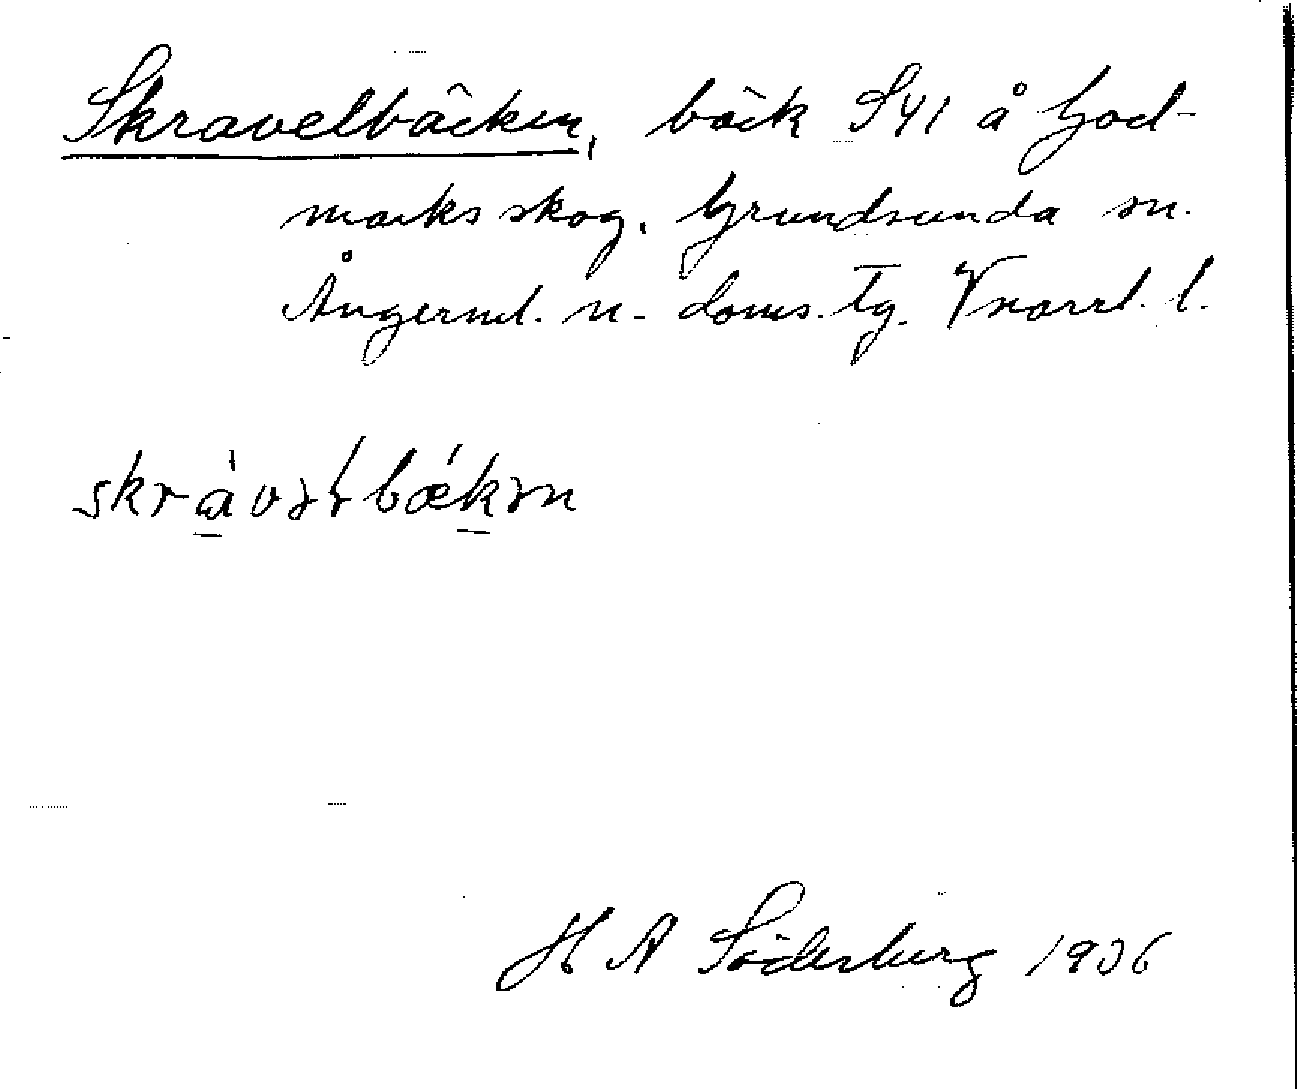 Skravelbäcken, bäck S41 å God-
marks skog. Grundsunda sn.
Ångerml. n. doms. tg. Vnorrl. l.
H A Söderberg 1936